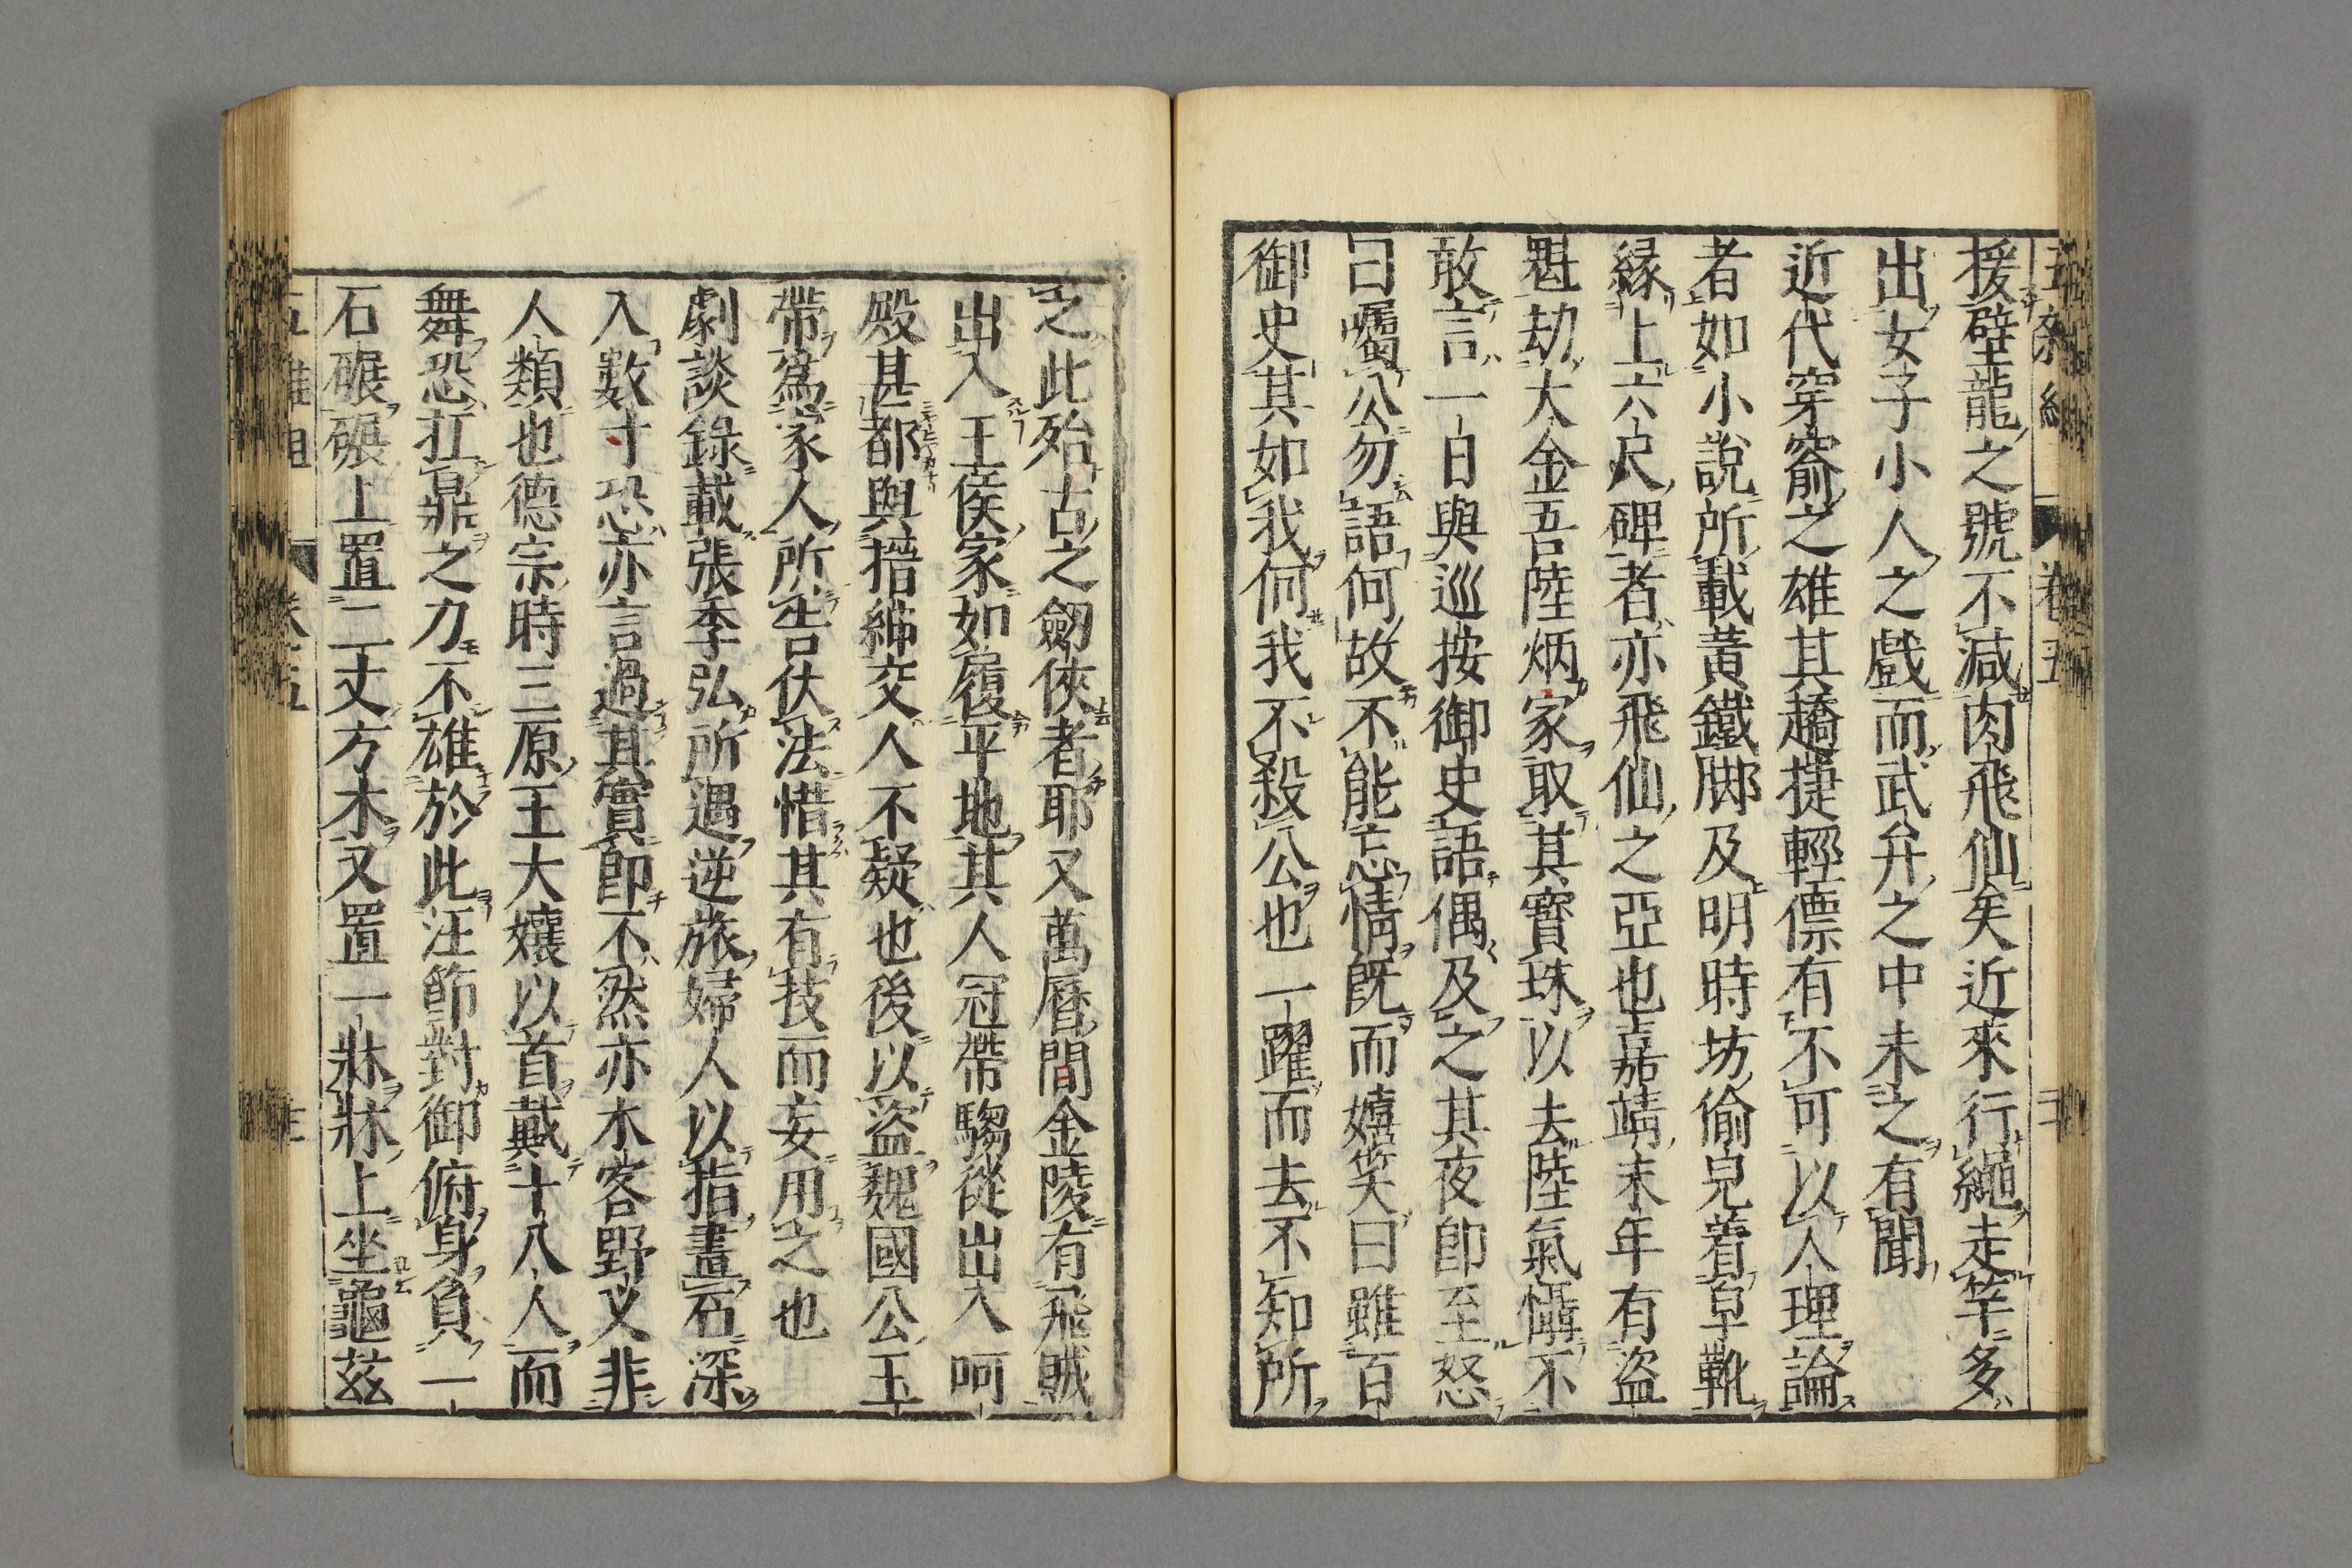 援壁龍之號不減肉飛仙矣近來行繩走竿多
出女子小人之戲而武弁之中未之有聞
近代穿窬之雄其趫捷輕僄有不可以人理論
者如小說所載黃鐵脚及明時坊偷兒着皁靴
緣上六尺碑者亦飛仙之亞也嘉靖末年有盜
魁劫大金吾陸炳家取其寶珠以去陸氣懾不
敢言一日與巡按御史語偶及之其夜卽至怒
曰囑公勿語何故不能忘情旣而嬉笑曰雖百
御史其如我何我不殺公也一躍而去不知所
之此殆古之劒俠者耶又萬曆間金陵有飛賊
出入王侯家如履平地其人冠帶騶從出入呵
殿甚都與搢紳交人不疑也後以盜魏國公玉
帶爲家人所告伏法惜其有技而妄用之也
劇談錄載張季弘所遇逆旅婦人以指畫石深
入數寸恐亦言過其實卽不然亦木客野叉非
人類也德宗時三原王大孃以首戴十八人而
舞恐扛鼎之力不雄於此汪節對御俯身負一
石碾碾上置二丈方木又置一牀牀上坐龜茲
卷五